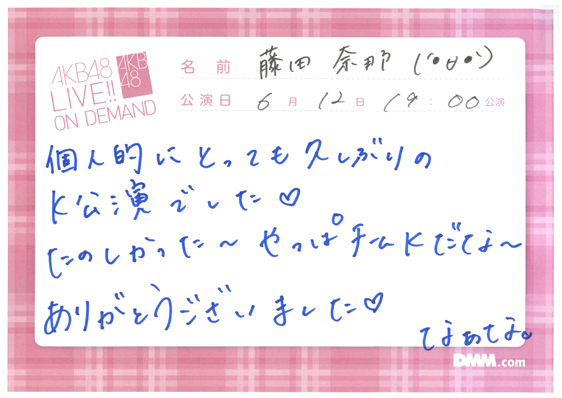 AKB48
LIVE!!
ON DEMAND
AKB
48
名前 藤田 奈那 ('•ㅂ•')
公演日 6月12日 19:00公演
個人的にとっても久しぶりの
K公演でした♡
たのしかった〜 やっぱチームKだな〜
ありがとうございました♡
なぁな。
DMM.com